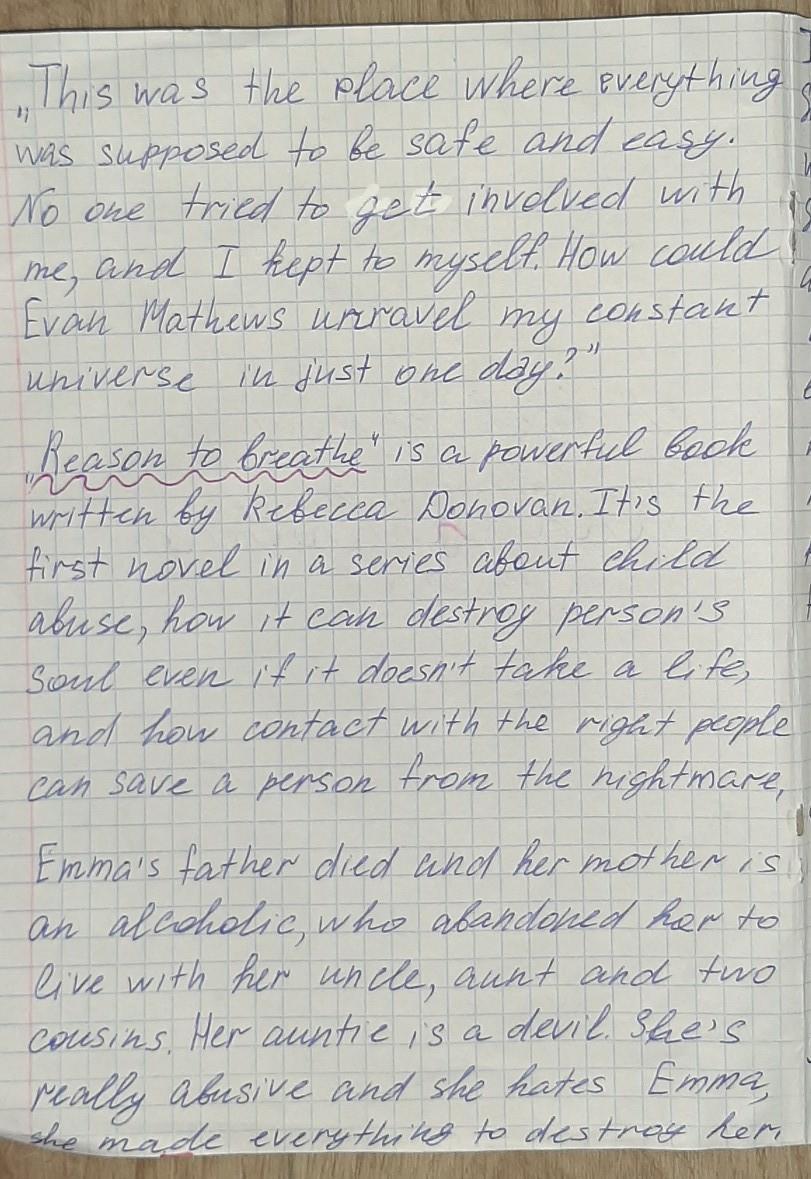 „This was the place where everything
was supposed to be safe and easy.
No one tried to get involved with
me, and I kept to myself. How could
Evan Mathews unravel my constant
universe in just one day?"
„Reason to breathe" is a powerful book
written by Rebecca Donovan. It's the
first novel in a series about child
abuse, how it can destroy person's
soul even if it doesn't take a life,
and how contact with the right people
can save a person from the nightmare.
Emma's father died and her mother is
an alcoholic, who abandoned her to
live with her uncle, aunt and two
cousins. Her auntie is a devil. She's
really abusive and she hates Emma,
she made everything to destroy her.